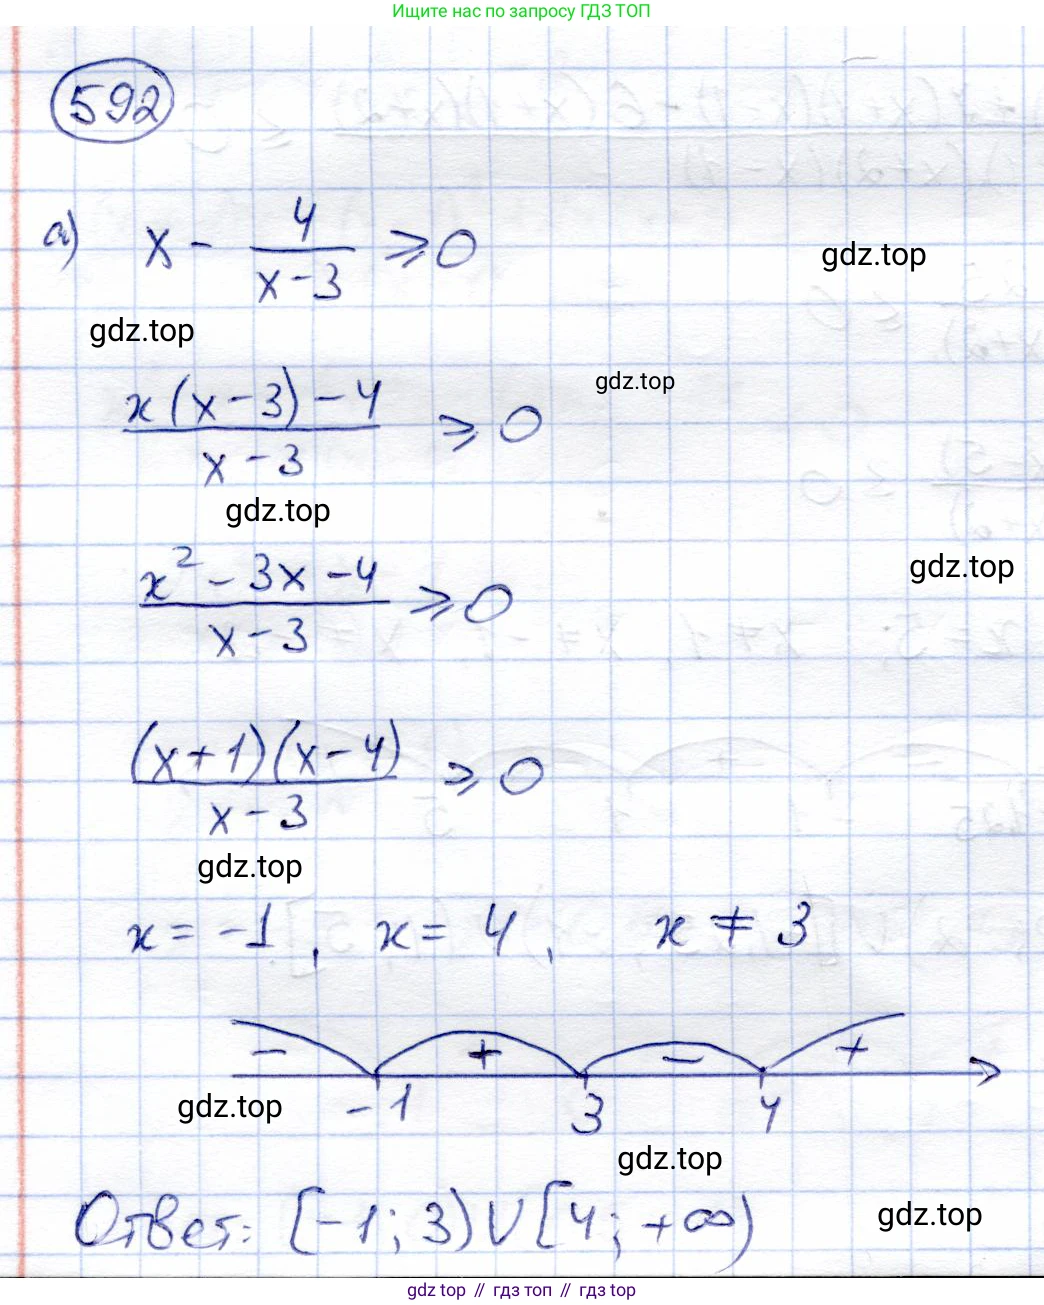 Ищите нас по запросу ГДЗ ТОП
592
а) x - 4/(x-3) ⩾ 0
gdz.top
gdz.top
(x(x-3)-4)/(x-3) ⩾ 0
gdz.top
gdz.top
(x² - 3x - 4)/(x-3) ⩾ 0
gdz.top
((x+1)(x-4))/(x-3) ⩾ 0
gdz.top
x = -1, x = 4, x ≠ 3
- + - +
-1 3 4
gdz.top
gdz.top
Ответ: [-1; 3) ∪ [4; +∞)
gdz.top
gdz.top // гдз топ // гдз top